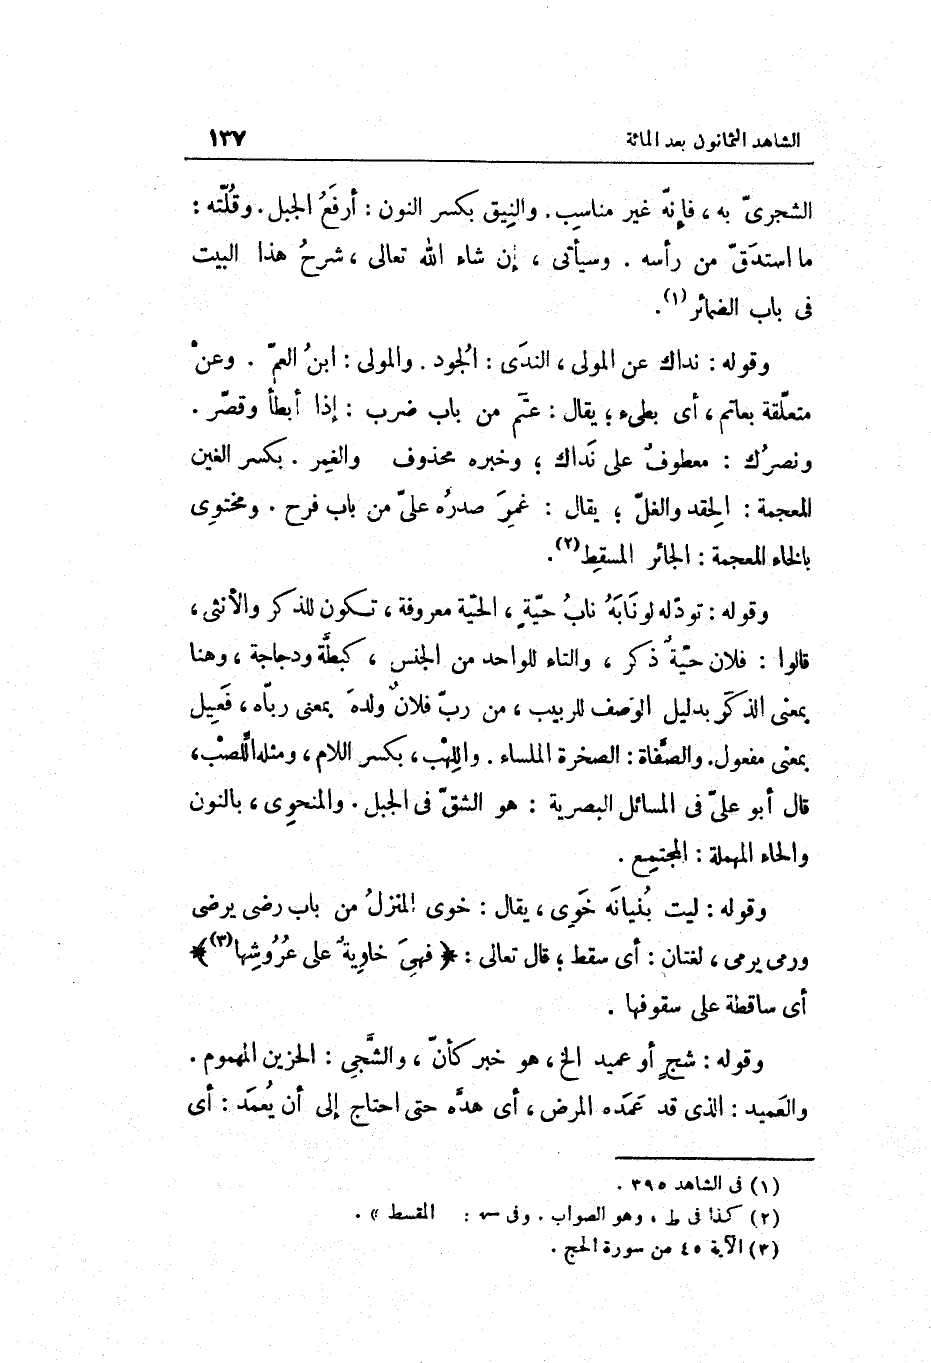 الشاهد الثمانون بعد المائة ١٣٧
الشجرىّ به ، فإنّه غير مناسِب . والنِيق بكسر النون : أرفَعُ الجبل . وقُلّته :
ما استدَقّ من رأسه . وسيأتى ، إن شاء الله تعالى ، شرحُ هذا البيت
فى باب الضمائر (١).
وقوله : نداك عن المولى ، الندَى : الجُود . والمولى : ابنُ العمّ . وعنْ
متعلّقة بعاتم ، أى بطىء ؛ يقال : عتَم من باب ضرب : إذا أبطأ وقصّر .
ونصرُك : معطوفٌ على نَداك ؛ وخبره محذوف والغِمر . بكسر الغين
المعجمة : الحِقد والغلّ ؛ يقال : غمِرَ صدرُه علىّ من باب فرح . ومختوِى
بالخاء المعجمة : الجائر المسقِط (٢).
وقوله : تودّ له لو نَابَهُ نابُ حيّةٍ ، الحيّة معروفة ، تكون للذكر والأنثى ،
قالوا : فلان حيّةٌ ذكر ، والتاء للواحد من الجنس ، كبطَّة ودجاجة ، وهنا
بمعنى الذكَر بدليل الوَصف للربيب ، من ربّ فلانٌ ولدهَ بمعنى ربّاه ، فَعيل
بمعنى مفعول . والصَّفاة : الصخرة الملساء . واللِهْب ، بكسر اللام ، ومثله اللِّصْب ،
قال أبو علىّ فى المسائل البصرية : هو الشقّ فى الجبل . والمنحوِى ، بالنون
والحاء المهملة : المجتمِع .
وقوله : ليت بُنيانَه خَوِى ، يقال : خوى المنزلُ من باب رضى يرضى
ورمى يرمى ، لغتان : أى سقط ؛ قال تعالى : ﴿ فهِىَ خاوِيةٌ على عُرُوشِها (٣) ﴾
أى ساقطة على سقوفها .
وقوله : شجٍ أو عميد الخ ، هو خبر كأنّ ، والشَّجِى : الحزين المهموم .
والعَميد : الذى قد عَمَده المرض ، أى هدَّه حتى احتاج إلى أن يُعمَد : أى
(١) فى الشاهد ٣٩٥ .
(٢) كذا فى ط ، وهو الصواب . وفى سه : المقسط » .
(٣) الآية ٤٥ من سورة الحج .